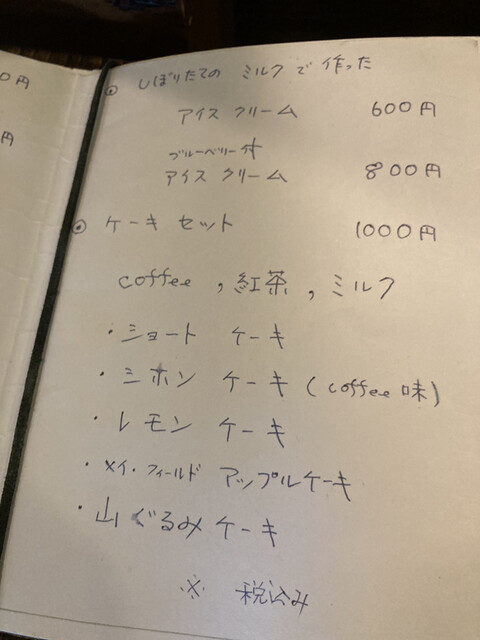 0円
円
◎ しぼりたての ミルクで 作った
アイス クリーム 600円
ブルーベリー付
アイス クリーム 800円
◎ ケーキ セット 1000円
coffee , 紅茶 , ミルク
・ショート ケーキ
・シホン ケーキ (coffee 味)
・レモン ケーキ
・メイ・フィールド アップルケーキ
・山ぐるみケーキ
※ 税込み